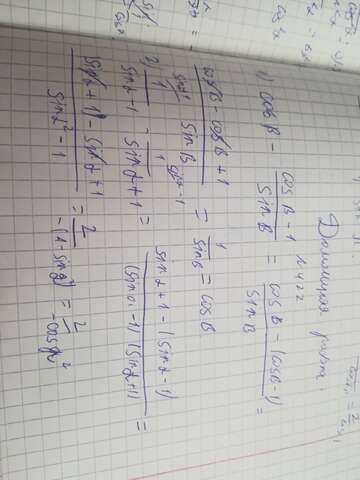 Домашня робота
N 422
1) cos β - \frac{cos β - 1}{sin β} = \frac{cos β - (cos β - 1)}{sin β} =
\frac{cos β - cos β + 1}{sin β} = \frac{1}{sin β} = cos β
2) \frac{1}{sin α - 1} - \frac{1}{sin α + 1} = \frac{sin α + 1 - (sin α - 1)}{(sin α - 1)(sin α + 1)} =
\frac{sin α + 1 - sin α + 1}{sin α² - 1} = \frac{2}{-(1 - sin α)} = \frac{2}{-cos α²}